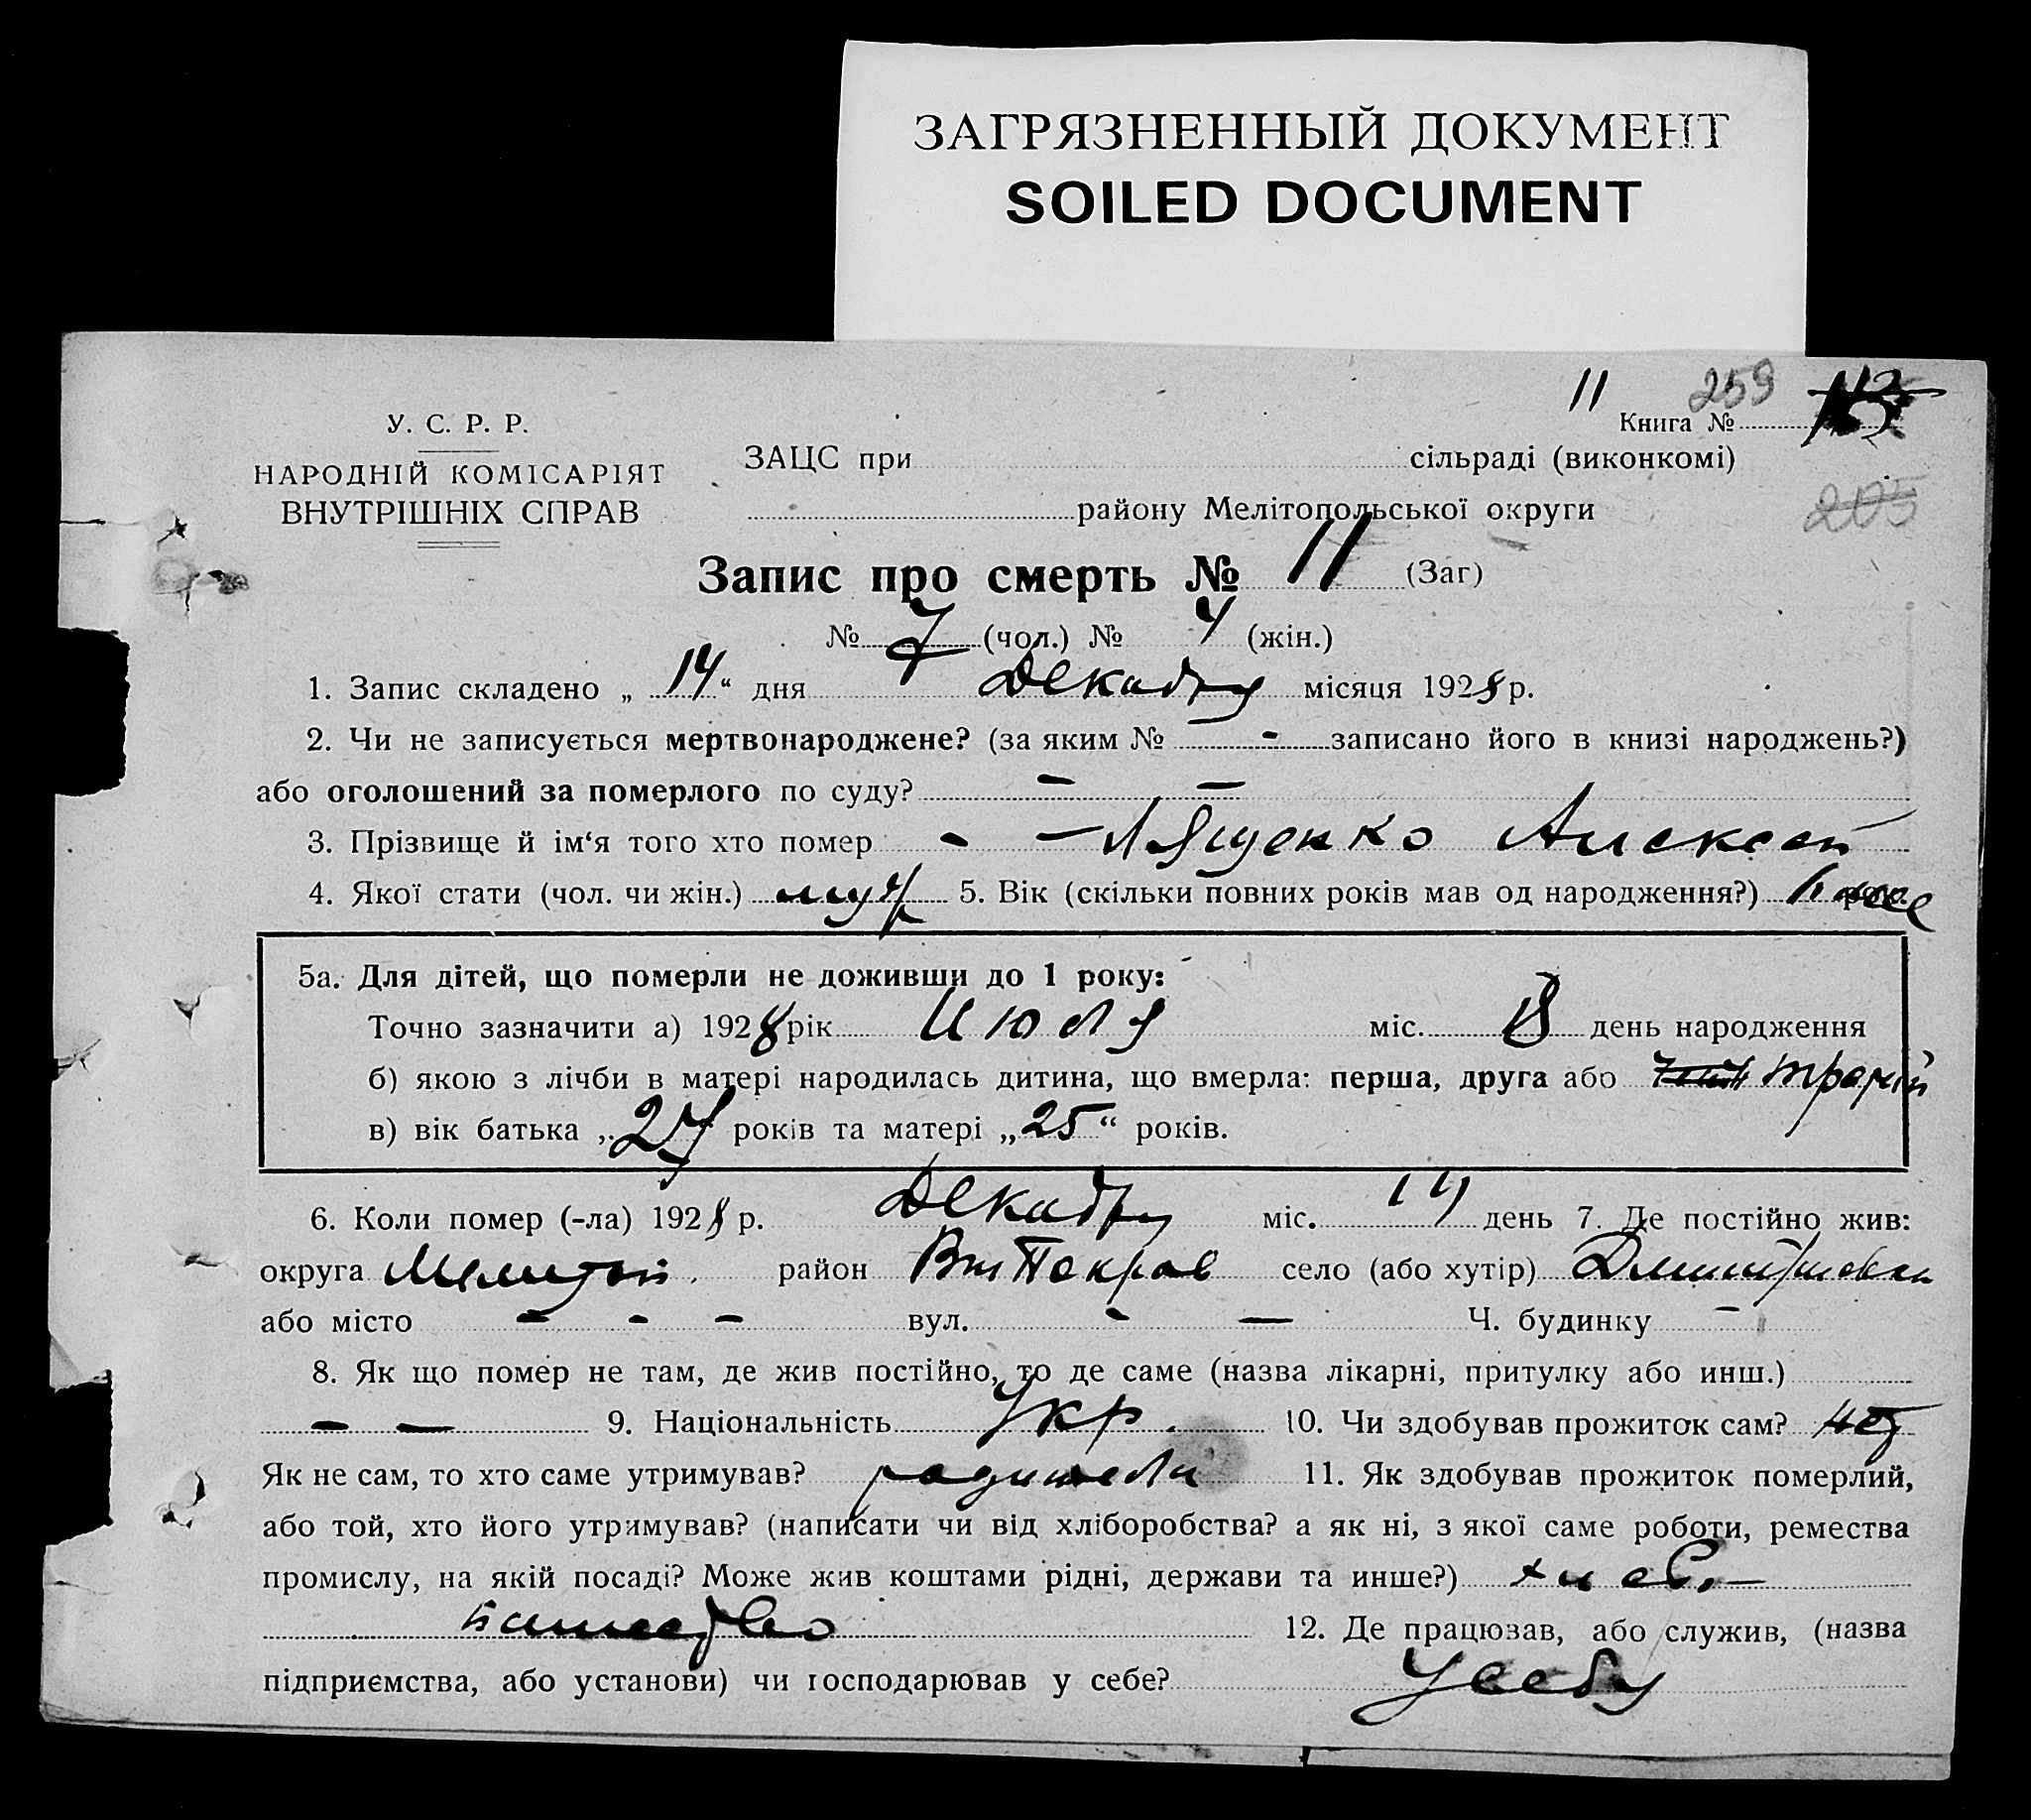 ЗАГРЯЗНЕННЫЙ ДОКУМЕНТ
SOILED DOCUMENT
11 259
У. С. Р. Р. Книга №
НАРОДНІЙ КОМІСАРІЯТ ЗАЦС при сільраді (виконкомі)
ВНУТРІШНІХ СПРАВ району Мелітопольської округи 205
Запис про смерть № 11 (Заг)
№ 7 (чол.) № 4 (жін.)
1. Запис складено „ 14 “ дня Декабря місяця 1928 р.
2. Чи не записується мертвонароджене? (за яким № - записано його в книзі народжень?)
або оголошений за померлого по суду? - -
3. Прізвище й ім‘я того хто помер - - Лященко Алексей
4. Якої стати (чол. чи жін.) муж 5. Вік (скільки повних років мав од народження?)
5а. Для дітей, що померли не доживши до 1 року:
Точно зазначити а) 1928 рік Июля міс. день народження
б) якою з лічби в матері народилась дитина, що вмерла: перша, друга або
в) вік батька „ 27 років та матері „ 25 “ років.
6. Коли помер (-ла) 1928 р. Декабря міс. 14 день 7. Де постійно жив:
округа район село (або хутір)
або місто - - - вул. - - Ч. будинку -
8. Як що помер не там, де жив постійно, то де саме (назва лікарні, притулку або инш.)
- - 9. Національність Укр. 10. Чи здобував прожиток сам? нет
Як не сам, то хто саме утримував? родители 11. Як здобував прожиток померлий,
або той, хто його утримував? (написати чи від хліборобства? а як ні, з якої саме роботи, ремества
промислу, на якій посаді? Може жив коштами рідні, держави та инше?) хлеб.-
пашество 12. Де працював, або служив, (назва
підприємства, або установи) чи господарював у себе? у себя